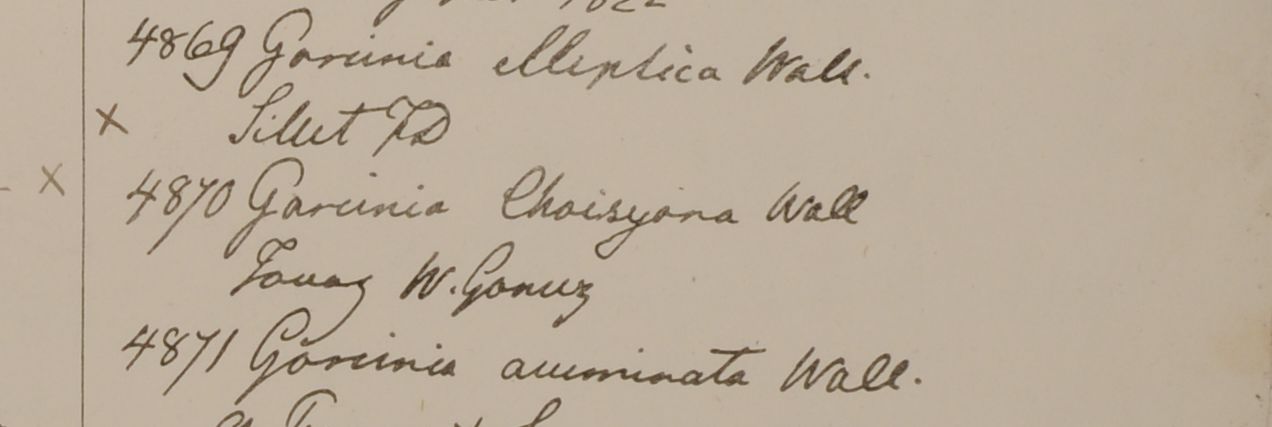 1822
4869 Garcinia elliptica Wall.
× Sillet FD
× 4870 Garcinia Choisyana Wall
Tavoy W. Gomez
4871 Garcinia acuminata Wall.